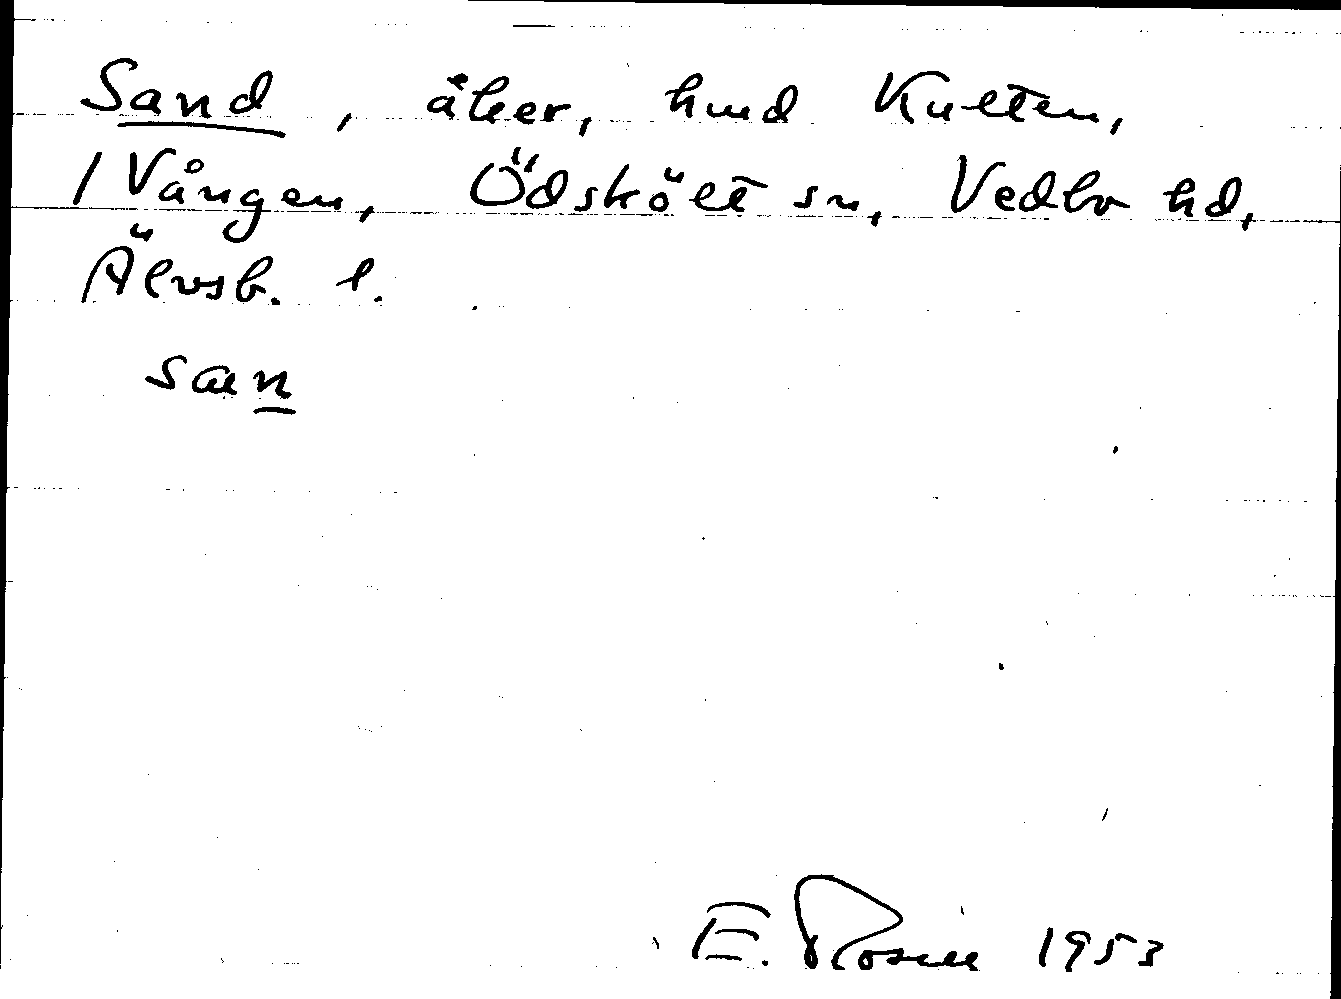 Sand, åker, hmd Kulten,
1 Vången, Ödskölt sn, Vedbo hd,
Älvsb. l.
san
E. Rosell 1953